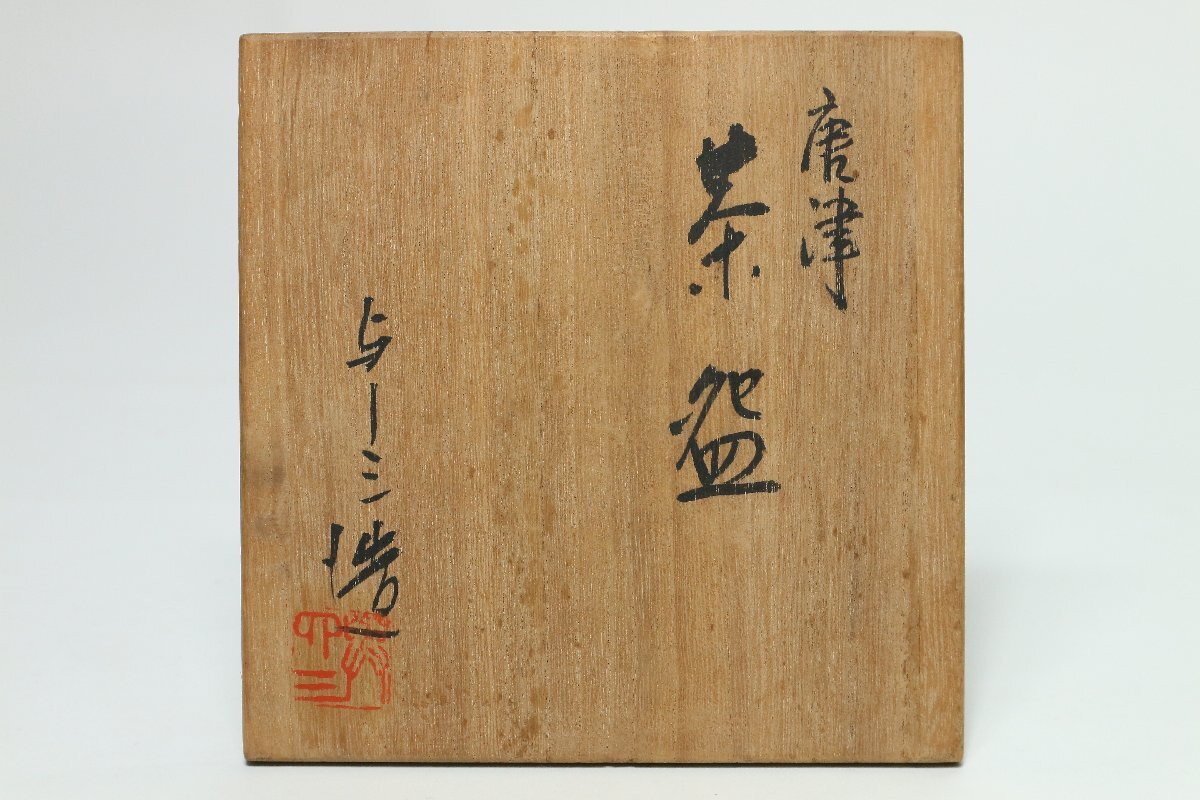 唐津
茶盌
与十三造